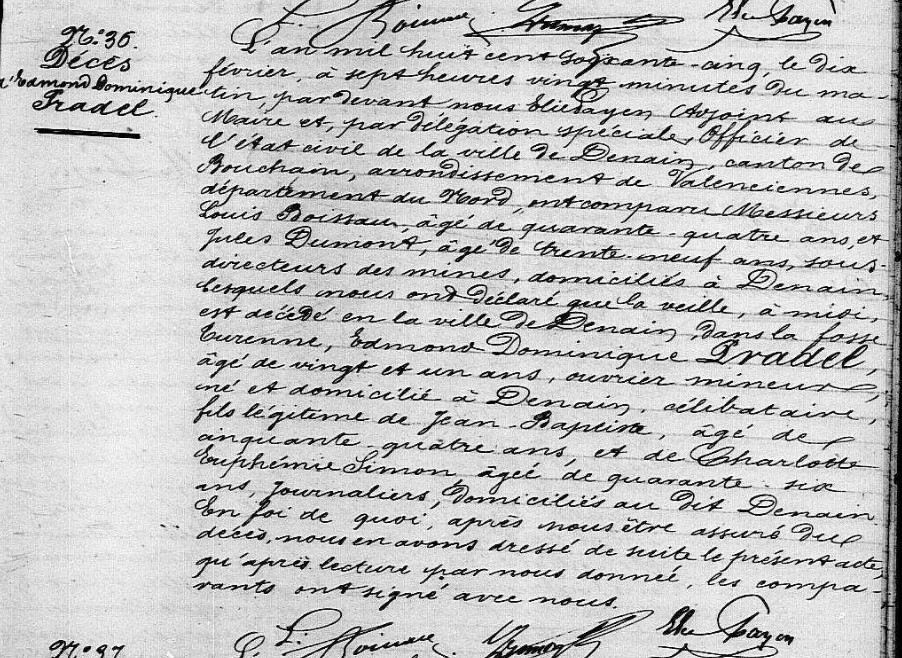 Elie Payen
N.° 36.
Décès
d'Edmond Dominique
Pradel.
L'an mil huit cent soixante-cinq, le dix
février, à sept heures vingt minutes du ma-
tin, par devant nous Elie Payen Adjoint au
Maire et, par délégation spéciale, Officier de
l'état civil de la ville de Denain, canton de
Bouchain, arrondissement de Valenciennes,
département du Nord, ont comparu Messieurs
Louis Boissau, âgé de quarante-quatre ans, et
Jules Dumont, âgé de trente-neuf ans, sous-
directeurs des mines, domiciliés à Denain,
lesquels nous ont déclaré que la veille, à midi,
est décédé en la ville de Denain, dans la fosse
Turenne, Edmond Dominique Pradel,
âgé de vingt et un ans, ouvrier mineur,
né et domicilié à Denain, célibataire,
fils légitime de Jean-Baptiste, âgé de
cinquante-quatre ans, et de Charlotte
Euphémie Simon, âgée de quarante-six
ans, journaliers, domiciliés au dit Denain.
En foi de quoi, après nous être assuré du
décès, nous en avons dressé de suite le présent acte,
qu'après lecture par nous donnée, les compa-
rants ont signé avec nous.
Elie Payen
N.° 37